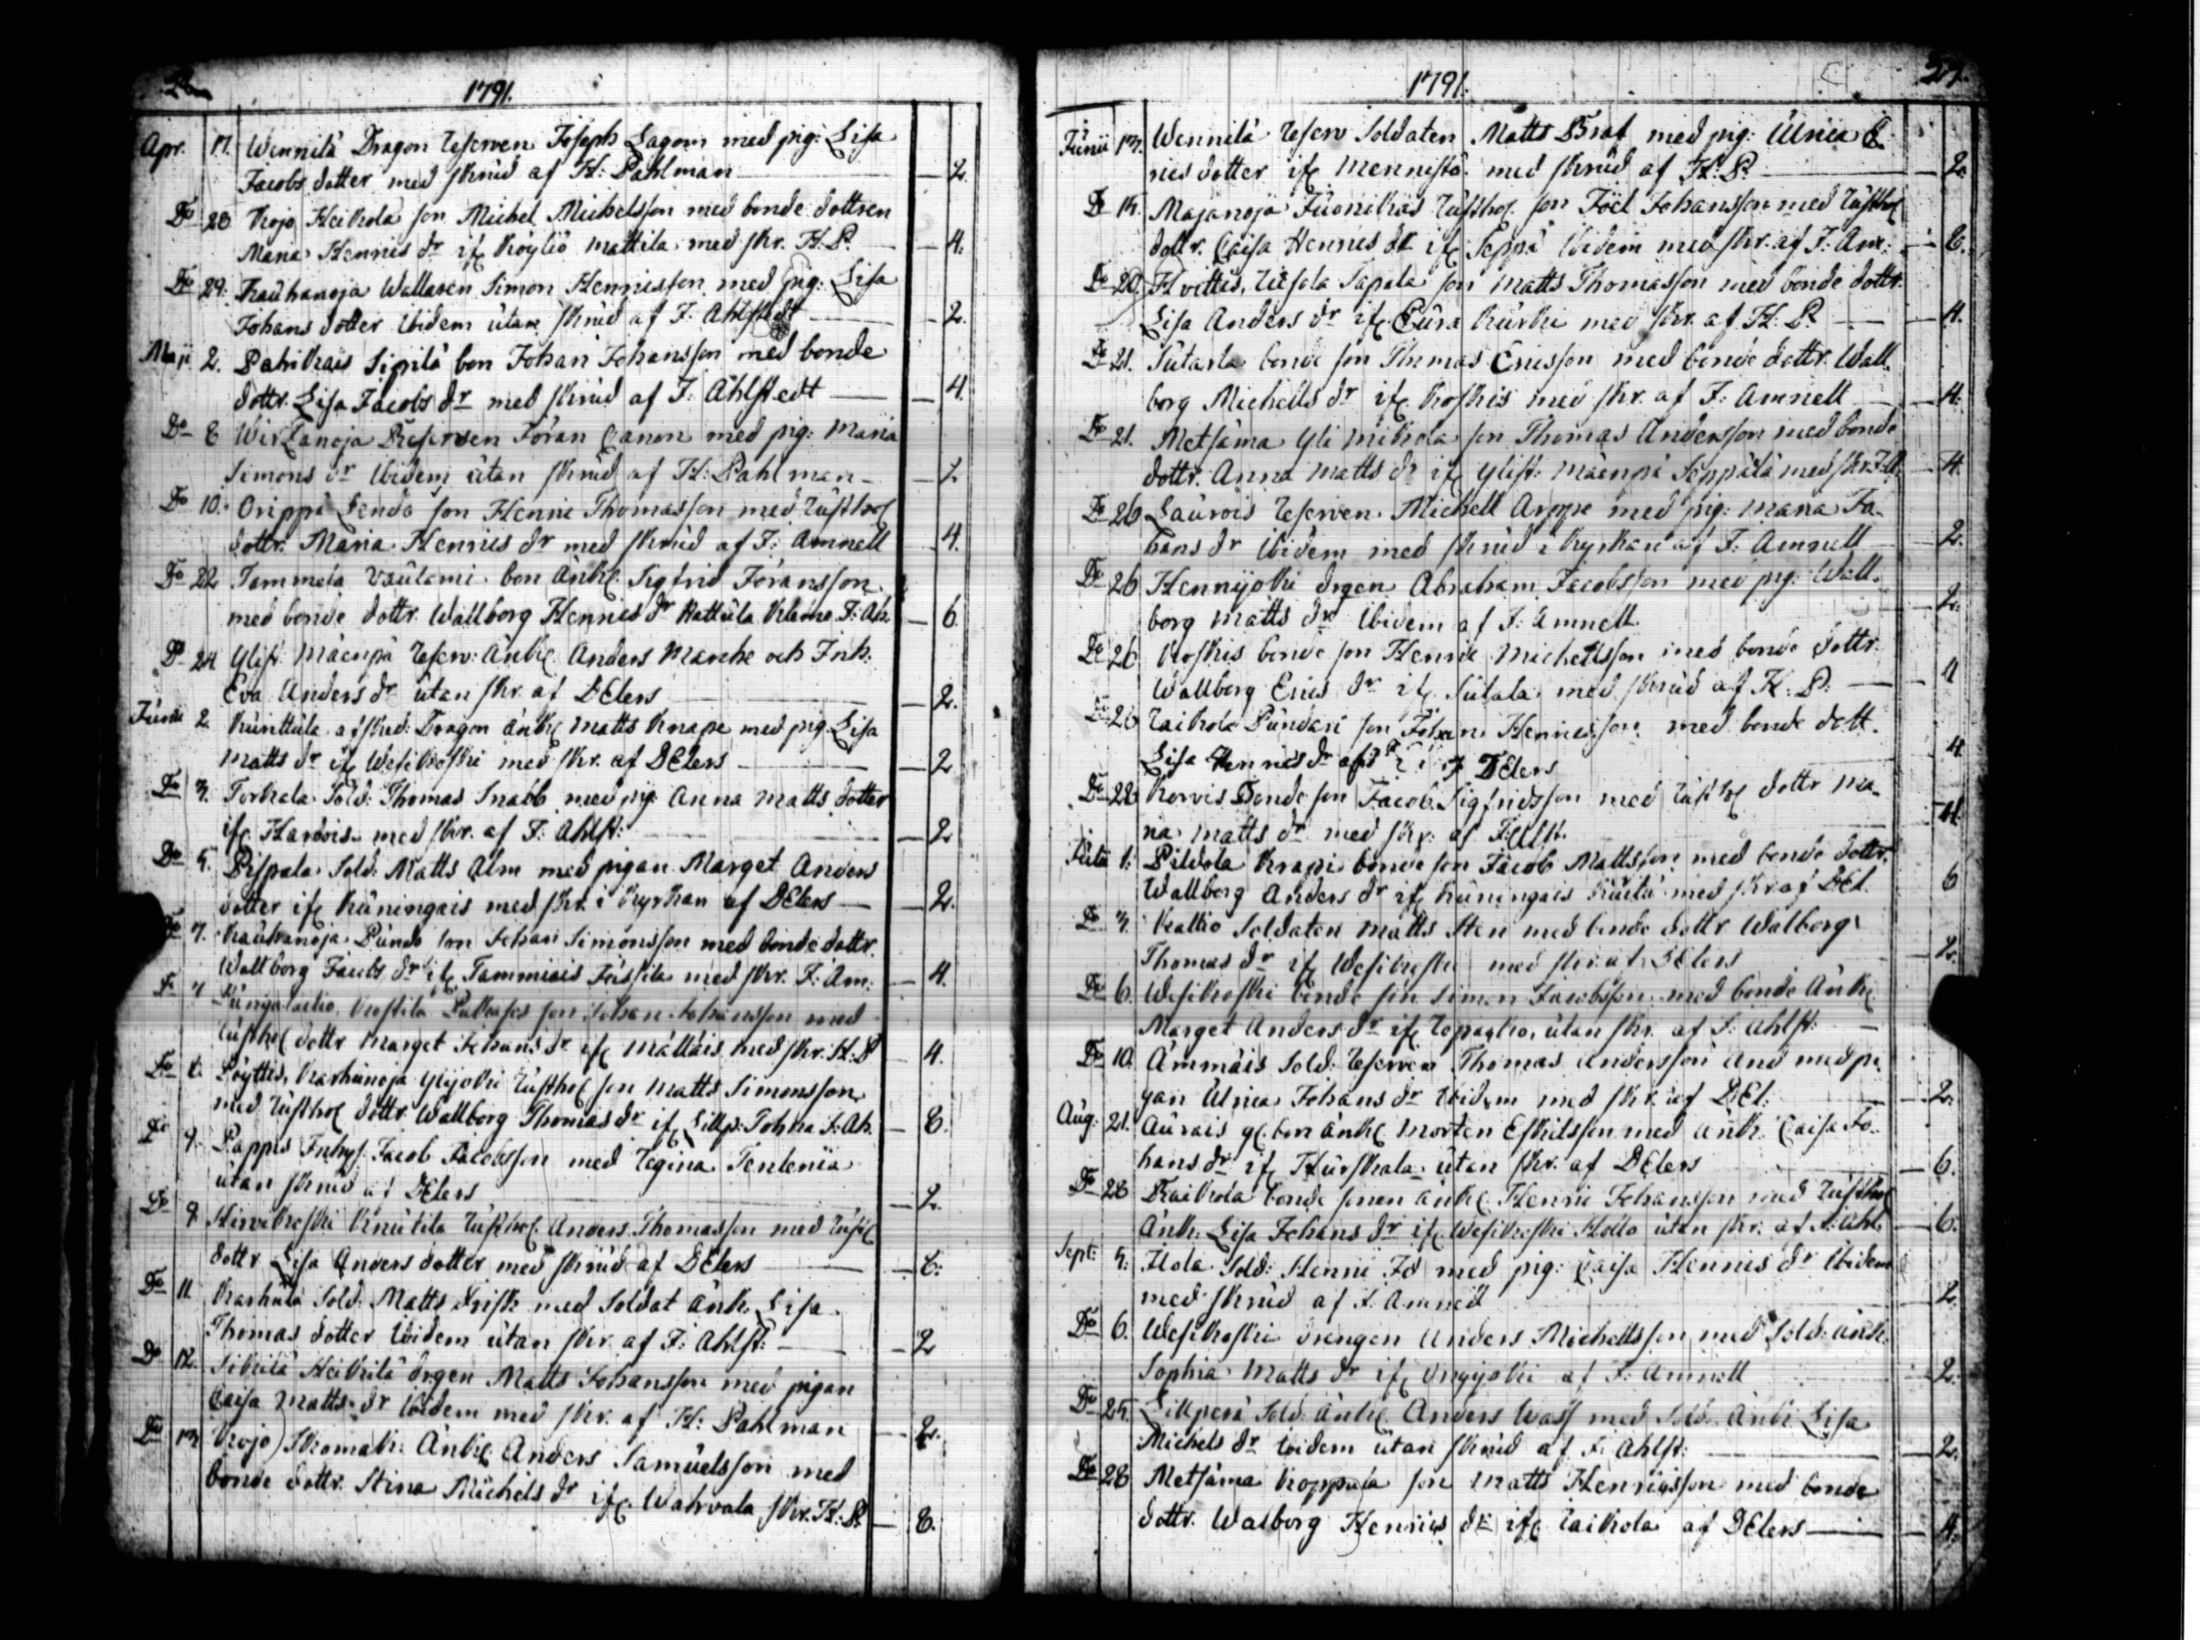 1791.
Apr. 17. Wennilä Dragon Reserven Joseph Lagom med pig: Lisa
Jacobs dotter med skrud af H: Pahlman — 2.
Do 28 Kojo Heikola son Michel Michelsson med bonde dottren
Maria Hennis dr if Köyliö Mattila med skr. H. P. — 4.
Do 29. Rauhanoja Wallaren Simon Hennisson med pig: Lisa
Johans dotter Ibidem utan skrud af J. Ahlstedt — 2.
Maji 2. Pahikais Sipilä bon Johan Johansson med bonde
dottr. Lisa Jacobs dr med skrud af J. Ahlstedt — 4
Do 8 Wirtanoja Reserven Jöran Canon med pig: Maria
Simons dr Ibidem utan skrud af H: Pahlman — 2
Do 10. Orippä son Henric Thomasson med rusthol
dottr. Maria Hennis dr med skrud af J: Amnell — 4.
Do 22 Tammela bon Änkl. Sigfrid Jöransson
med bonde dottr. Wallborg Hennis dr Mattula J: Ah. — 6
Do 24 Ylist. Mäenpä Reserv: Änkl Anders Manke och Inh:
Eva Anders dr utan skr. af DElers — 2.
Junii 2 Kunttula afsked: Dragon änkl Matts Knape med pig Lisa
Matts dr if Wesikoski med skr. af DElers — 2
Do 3. Torkala Sold: Thomas Snabb med pig Anna Matts dotter
if Harois med skr. af J: Ahlst: — 2
Do 5. Pispala Sold: Matts Alm med pigan Marget Anders
dotter if Kuningais med skr. i kyrkan af DElers — 2.
Do 7. Rauhanoja Pundo son Johan Simonsson med bonde dottr.
Wallborg Jacobs dr if Tammiais Jussila med skr. J: Am: — 4.
Do 7 Punga laitio son Johan Johansson med
rusthol dottr Marget Johans dr if Mälläis med skr. H: P — 4.
Do 8. Pöyttis, Karhunoja Yljoki rusthol son Matts Simonsson
med rusthol dottr. Wallborg Thomas dr if J: Ah. — 8.
Do 9. Pappis Inhys. Jacob Jacobsson med Regina Tentenia
utan skrud af DElers — 2.
Do 9 Hirvikoski Knutila rusthol. Anders Thomasson med rusthol
dottr Lisa Anders dotter med skrud af DElers — 8:
Do 11. Karhula Sold: Matts Frisk med Soldat änk. Lisa
Thomas dotter Ibidem utan skr. af J: Ahlst: — 2
Do 12. Sikilä Heikilä drgen Matts Johansson med pigan
Caisa Matts dr Ibidem med skr. af H: Pahlman — 2.
Do 13 Kojo Skomak: Änkl: Anders Samuelsson med
bonde dottr. Stina Michels dr if Wahvala skr. H: P. — 8.
1791. 27.
Junii 13. Wennilä Reserv Soldaten Matts Braf med pig: Ulrica E
rics dotter if Mennistö med skrud af H: P. — 2.
Do 15. Majanoja Juonikas rusthol. son Joel Johansson med rusthol
dottr. Caisa Hennis dr if Seppä Ibidem med skr. af J: Am: — 8.
Do 20. Hvittis, Sapala son Matts Thomasson med bonde dottr.
Lisa Anders dr if Eura Kurki med skr. af H. P. — 4.
Do 21. Sutarla bonde son Thomas Ericsson med bonde dottr. Wall
borg Michells dr if Koskis med skr. af J: Amnell — 4.
Do 21. Metsäma Yli Mikola son Thomas Andersson med bonde
dottr. Anna Matts dr if Ylist: Mäenpä Seppälä med skr. — 4.
Do 26 Laurois Reserven Michell Arppe med pig: Maria Jo
hans dr Ibidem med skrud i kyrkan af J: Amnell — 2.
Do 26 Hennijoki drgen Abraham Jacobsson med pig. Wall
borg Matts dr Ibidem af J. Amnell — 2.
Do 26 Koskis bonde son Henric Michellsson med bonde dottr.
Wallborg Erics dr if Sutala med skrud af H: P: — 4
Do 26 Raikola Pundari son Johan Hennisson med bonde dott.
Lisa Hennis dr DElers — 4
Do 28 Korvis bonde son Jacob Sigfridsson med rusthol dottr Ma
ria Matts dr med skr: af J: Ahlst. — 4.
Julii 1. Pildola Krapi bonde son Jacob Mattsson med bonde dottr.
Wallborg Anders dr if Kuningais med skr af DEl. — 6
Do 3. Kallio Soldaten Matts Sten med bonde dottr Walborg
Thomas dr if Wesikoski med skr. af DElers — 2.
Do 6. Wesikoski bonde son Simon Jacobsson med bonde Änkl
Marget Anders dr if utan skr. af J. Ahlst: —
Do 10. Ämmäis Sold: Reserven Thomas Andersson And med pi
gan Ulrica Johans dr Ibidem med skr. af DEl: — 2.
Aug. 21. Aurais bon änkl Morten Eskilsson med änk. Caisa Jo
hans dr if Hurskala utan skr. af DElers — 6.
Do 28 Raikola bonde sonen änkl Henric Johansson med rusthol
Änk. Lisa Johans dr if Wesikoski Hollo utan skr. af J. Ahl. — 6.
Sept: 5. Ilola Sold: Henric Jd med pig: Caisa Hennis dr Ibidem
med skrud af J. Amnell — 2.
Do 6. Wesikoski drengen Anders Michellsson med Sold: änk.
Sophia Matts dr if af J: Amnell — 2.
Do 25. Lillperä Sold: änkl: Anders Wass med Sold: Änk Lisa
Michels dr Ibidem utan skrud af J. Ahlst: — 2.
Do 28 Metsäma Koppala son Matts Hennigsson med bonde
dottr. Walborg Hennis dr if Raikola af DElers — 4.